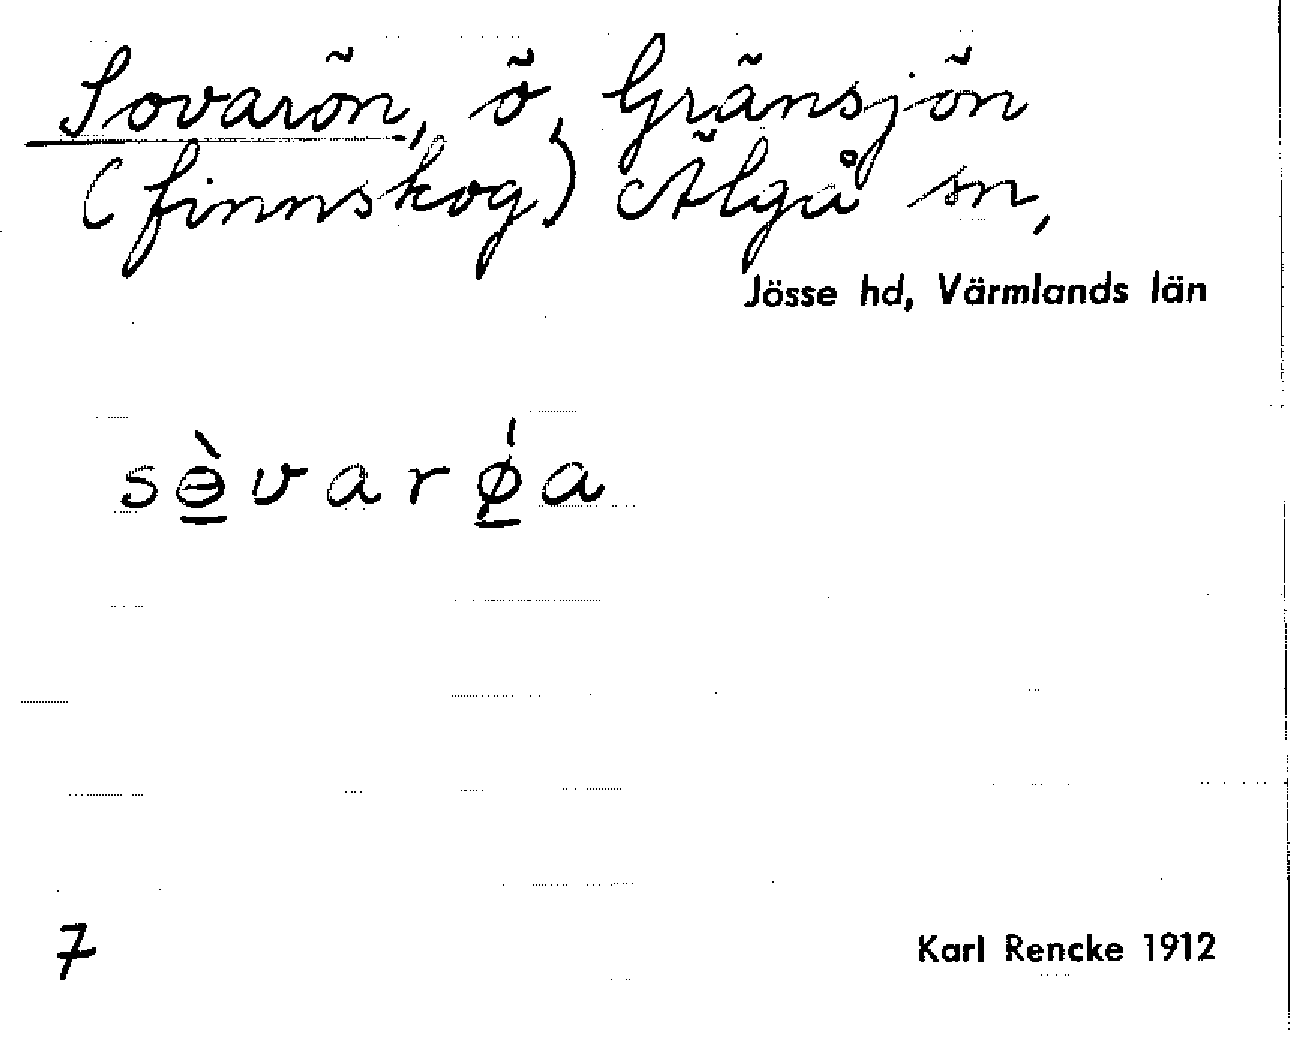 Sovarön, ö, Gränsjön
(finnskog) Älgå sn,
Jösse hd, Värmlands län
sɵ̲̀varǿ̲a
7
Karl Rencke 1912